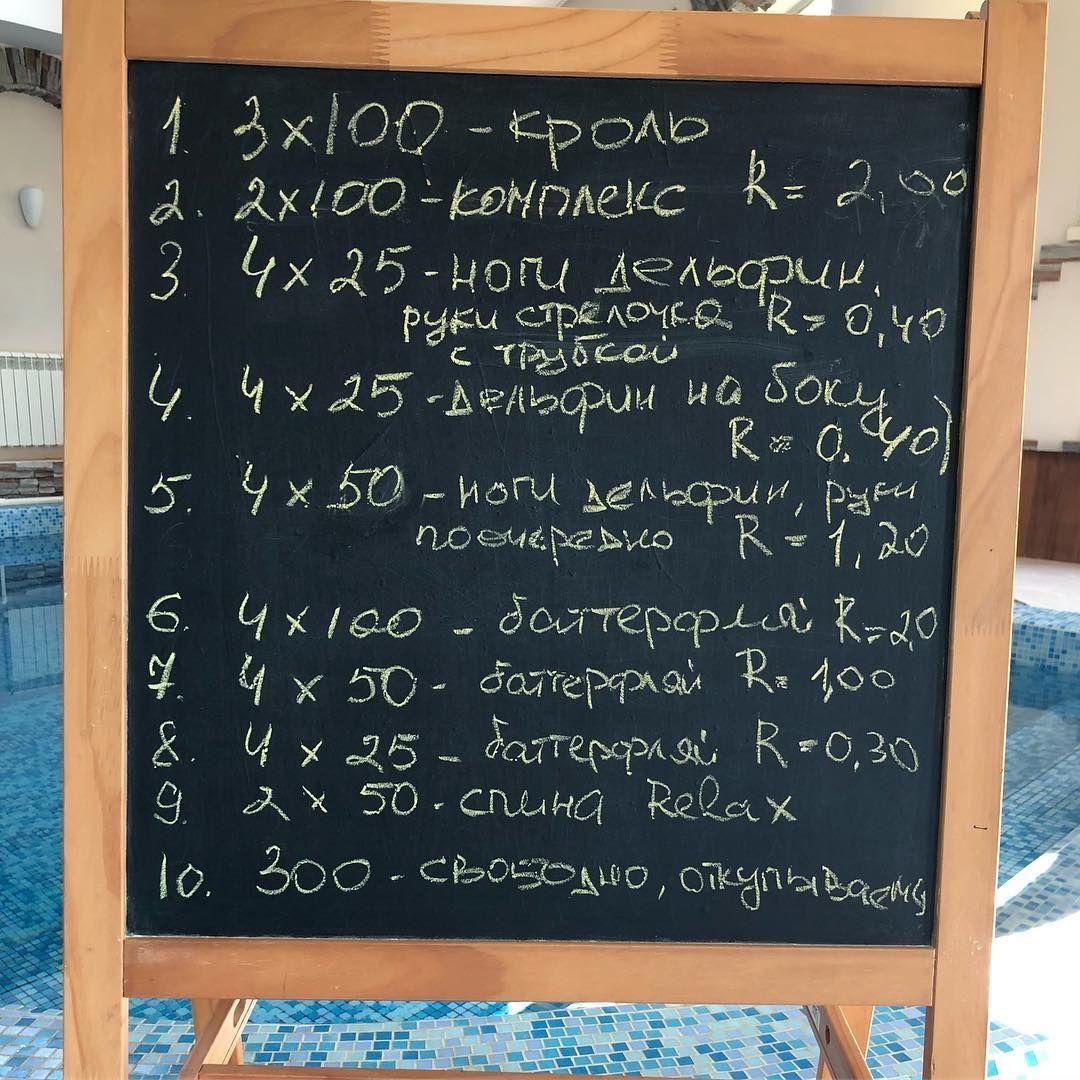 1. 3x100 - кроль
2. 2x100 - комплекс R = 2,00
3. 4x25 - ноги дельфин,
руки стрелочка R = 0,40
с трубкой
4. 4x25 - дельфин на боку
R = 0.40)
5. 4x50 - ноги дельфин, руки
поочередно R = 1,20
6. 4x100 - баттерфляй R = 2,0
7. 4x50 - баттерфляй R = 1,00
8. 4x25 - баттерфляй R = 0,30
9. 2x50 - спина Relax
10. 300 - свободно, откупываемя